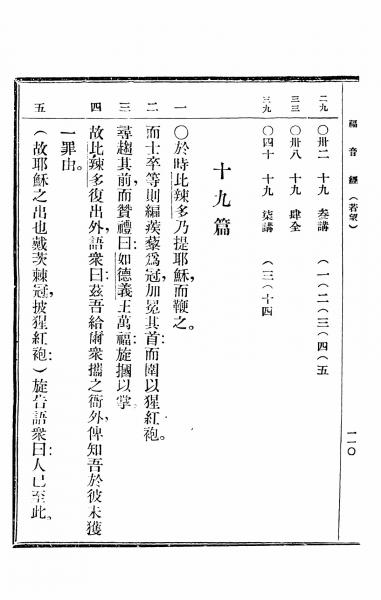 福音經（若望）
一一〇
二九　〇卅二　十九　叄講　（一）（二）（三）（四）（五
三三　〇卅八　十九　肆全
三九　〇四十　十九　柒講　（三）（十四
十九篇
一　〇於時比辣多乃提耶穌，而鞭之。
二　而士卒等則編蒺藜爲冠，加冕其首：而圍以猩紅袍。
三　尋趨其前，而贊禮曰：如德義王萬福：旋摑以掌
四　故比辣多復出外，語衆曰：茲吾給爾衆攜之衙外，俾知吾於彼未獲
一罪由。
五　（故耶穌之出也，戴茨棘冠，披猩紅袍：）旋告語衆曰：人已至此。